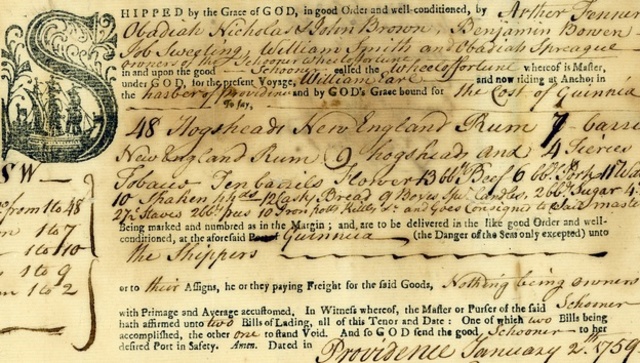 SHIPPED by the Grace of GOD, in good Order and well-conditioned, by Arther Fenner
Obadiah Nicholas John Brown, Benjamin Bowen
Job Sweeting, William Smith and Obadiah Spreague
owners of the Schooner Wheel of fortune
in and upon the good Schooner called the Wheel of fortune whereof is Master,
under GOD, for the present Voyage, William Earl and now riding at Anchor in
the harber of providence and by GOD's Grace bound for the Cost of Guinnia
To say,
48 Hogsheads New England Rum 7 barre
New England Rum 9 hogsheads and 4 Teirces
Tobacco Ten barriels Flower 13 bbls Beef 6 bbls Pork
10 Shaken hhds 12 Casks Bread 9 Boxes Candles, 2 bbls Sugar 4
27 pr Slaves 2 bbls 10 Iron potts and Goes Consigned to said master
SW
from 1 to 48
1 to 7
1 to 10
1 to 9
1 to 2
Being marked and numbred as in the Margin; and, are to be delivered in the like good Order and well-
conditioned, at the aforesaid Guinnia (the Danger of the Seas only excepted) unto
the Shippers
or to their Assigns, he or they paying Freight for the said Goods, Nothing being owners
Schoner
with Primage and Average accustomed. In Witness whereof, the Master or Purser of the said
hath affirmed unto two Bills of Lading, all of this Tenor and Date: One of which two Bills being
accomplished, the other one to stand Void. And so GOD send the good Schooner to her
desired Port in Safety. Amen. Dated in Providence January 2d. 1759